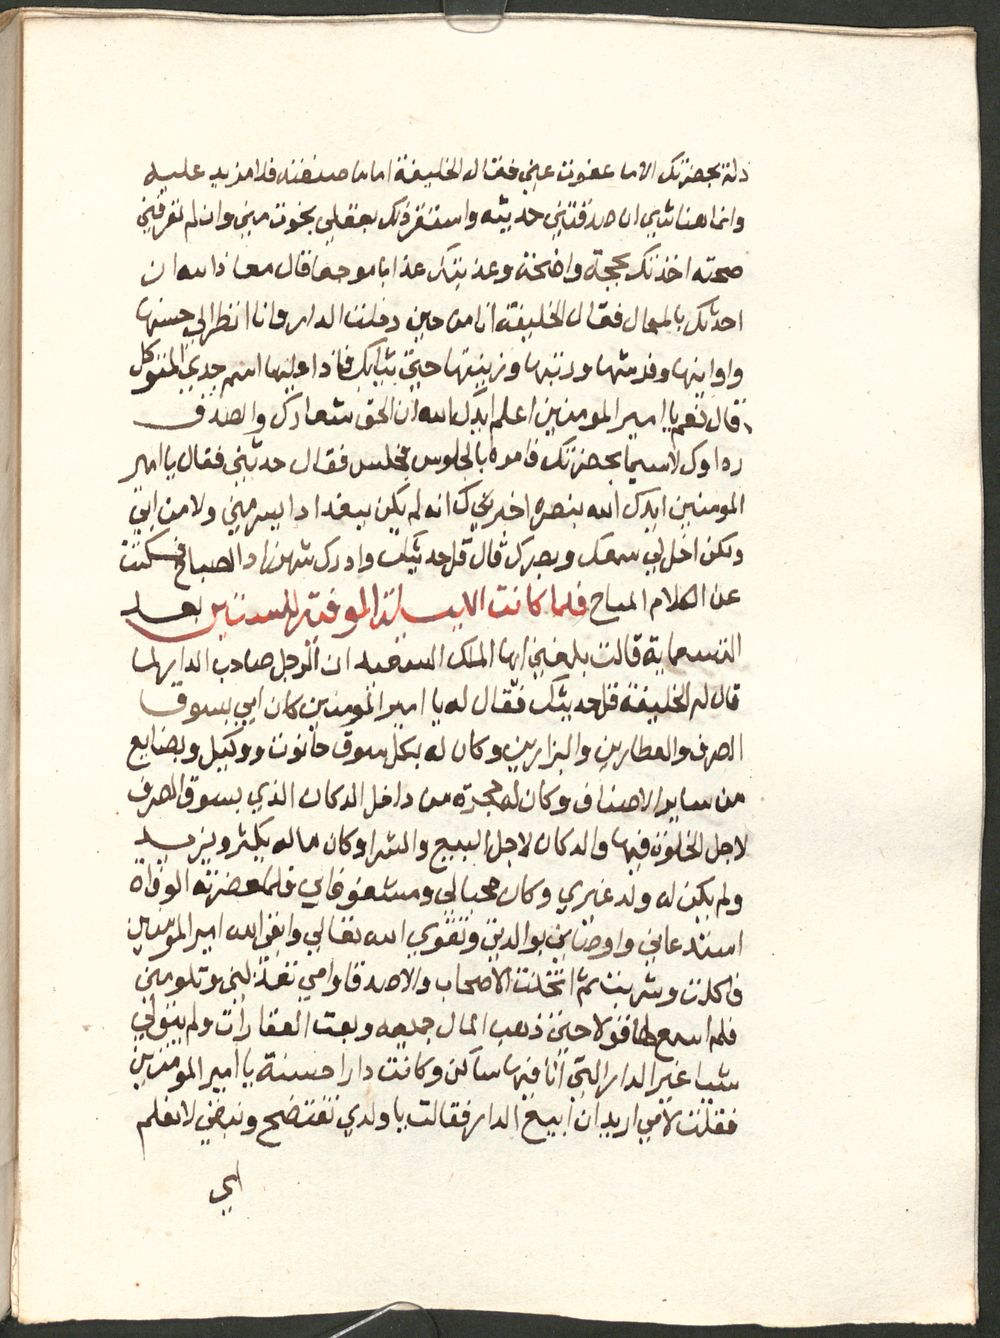 ذلة بحضرتك الا ما عفوت عني فقال الخليفة اما ما صنعته فلا مزيد عليه
وانما هنا شي ان صدقتني حديثه واستقر ذلك بعقلي نجوت مني وان لم تعرفني
صحته اخذتك بحجة واضحة وعذبتك عذابا موجعا قال معاذ الله ان
احدثك بالمحال فقال الخليفة انا من حين دخلت الدار وانا انظر الي حسنها
واوانيها وفرشها ورتبها وزينتها حتي ثيابك فاذا عليها اسم جدي المتوكل
قال نعم يا امير المومنين اعلم ايدك الله ان الحق شعارك والصدق
رداوك لاسيما بحضرتك فامره بالجلوس فجلس فقال حدثني فقال يا امير
المومنين ايدك الله بنصره اخبرك انه لم يكن ببغداد ايسر مني ولا من ابي
ولكن اخل لي سمعك وبصرك قال قل حديثك وادرك شهرزاد الصباح فسكتت
عن الكلام المباح فلما كانت الليلة الموفية للستين بعد
التسعماية قالت بلغني ايها الملك السعيد ان الرجل صاحب الدار لما
قال له الخليفة قل حديثك فقال له يا امير المومنين كان ابي بسوق
الصرف والعطارين والبزازين وكان له بكل سوق حانوت ووكيل وبضايع
من ساير الاصناف وكان له حجرة من داخل الدكان الذي بسوق الصرف
لاجل الخلوة فيها والدكان لاجل البيع والشرا وكان ماله يكثر ويزيد
ولم يكن له ولد غيري وكان محبا لي ومشغوفا بي فلما حضرته الوفاة
استدعاني واوصاني بوالدتي وتقوي الله تعالي وابقي الله امير المومنين
فاكلت وشربت ثم اتخذت الاصحاب والاصدقا وامي تعذلني وتلومني
فلم اسمع لها قولا حتي ذهب المال جميعه وبعت العقارات ولم يبق لي
شيا غير الدار التي انا فيها ساكن وكانت دارا حسنة يا امير المومنين
فقلت لامي اريد ان ابيع الدار فقالت يا ولدي تفتضح وتبقي لا تعلم
الي